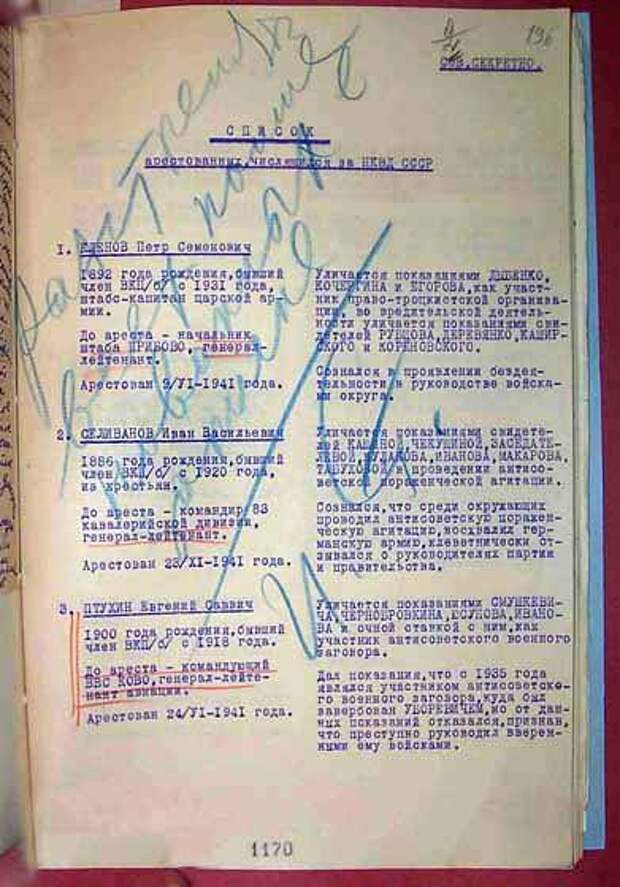 196
СОВ.СЕКРЕТНО.
СПИСОК
арестованных, числящихся за НКВД СССР
1. КЛЕНОВ Петр Семенович
1892 года рождения, бывший
член ВКП/б/ с 1931 года,
штабс-капитан царской ар-
мии.
До ареста - начальник
штаба ПРИБОВО, генерал-
лейтенант.
Арестован 9/VI-1941 года.
Уличается показаниями ДЫБЕНКО,
КОЧЕРГИНА и ЕГОРОВА, как участ-
ник право-троцкистской организа-
ции, во вредительской деятель-
ности уличается показаниями сви-
детелей РУБЦОВА, ДЕРЕВЯНКО, КАШИР-
СКОГО и КОРЕНОВСКОГО.
Сознался в проявлении бездея-
тельности в руководстве войска-
ми округа.
2. СЕЛИВАНОВ Иван Васильевич
1886 года рождения, бывший
член ВКП/б/ с 1920 года,
из крестьян.
До ареста - командир 83
кавалерийской дивизии,
генерал-лейтенант.
Арестован 23/XI-1941 года.
Уличается показаниями свидете-
лей, ЧЕКУШИНОЙ, ЗАСЕДАТЕ-
ЛЕВОЙ, БУЛАТОВА, ИВАНОВА, МАКАРОВА,
ТАБУХОВОЙ, в проведении антисо-
ветской пораженческой агитации.
Сознался, что среди окружающих
проводил антисоветскую поражен-
ческую агитацию, восхвалял гер-
манскую армию, клеветнически от-
зывался о руководителях партии
и правительства.
3. ПТУХИН Евгений Саввич
1900 года рождения, бывший
член ВКП/б/ с 1918 года.
До ареста - командующий
ВВС КОВО, генерал-лейте-
нант авиации.
Арестован 24/VI-1941 года.
Уличается показаниями СМУШКЕВИ-
ЧА, ЧЕРНОБРОВКИНА, ЮСУПОВА, ИВАНО-
ВА и очной ставкой с ним, как
участник антисоветского военного
заговора.
Дал показания, что с 1935 года
являлся участником антисоветско-
го военного заговора, куда был
завербован УБОРЕВИЧЕМ, но от дан-
ных показаний отказался, признав,
что преступно руководил вверен-
ными ему войсками.
1170